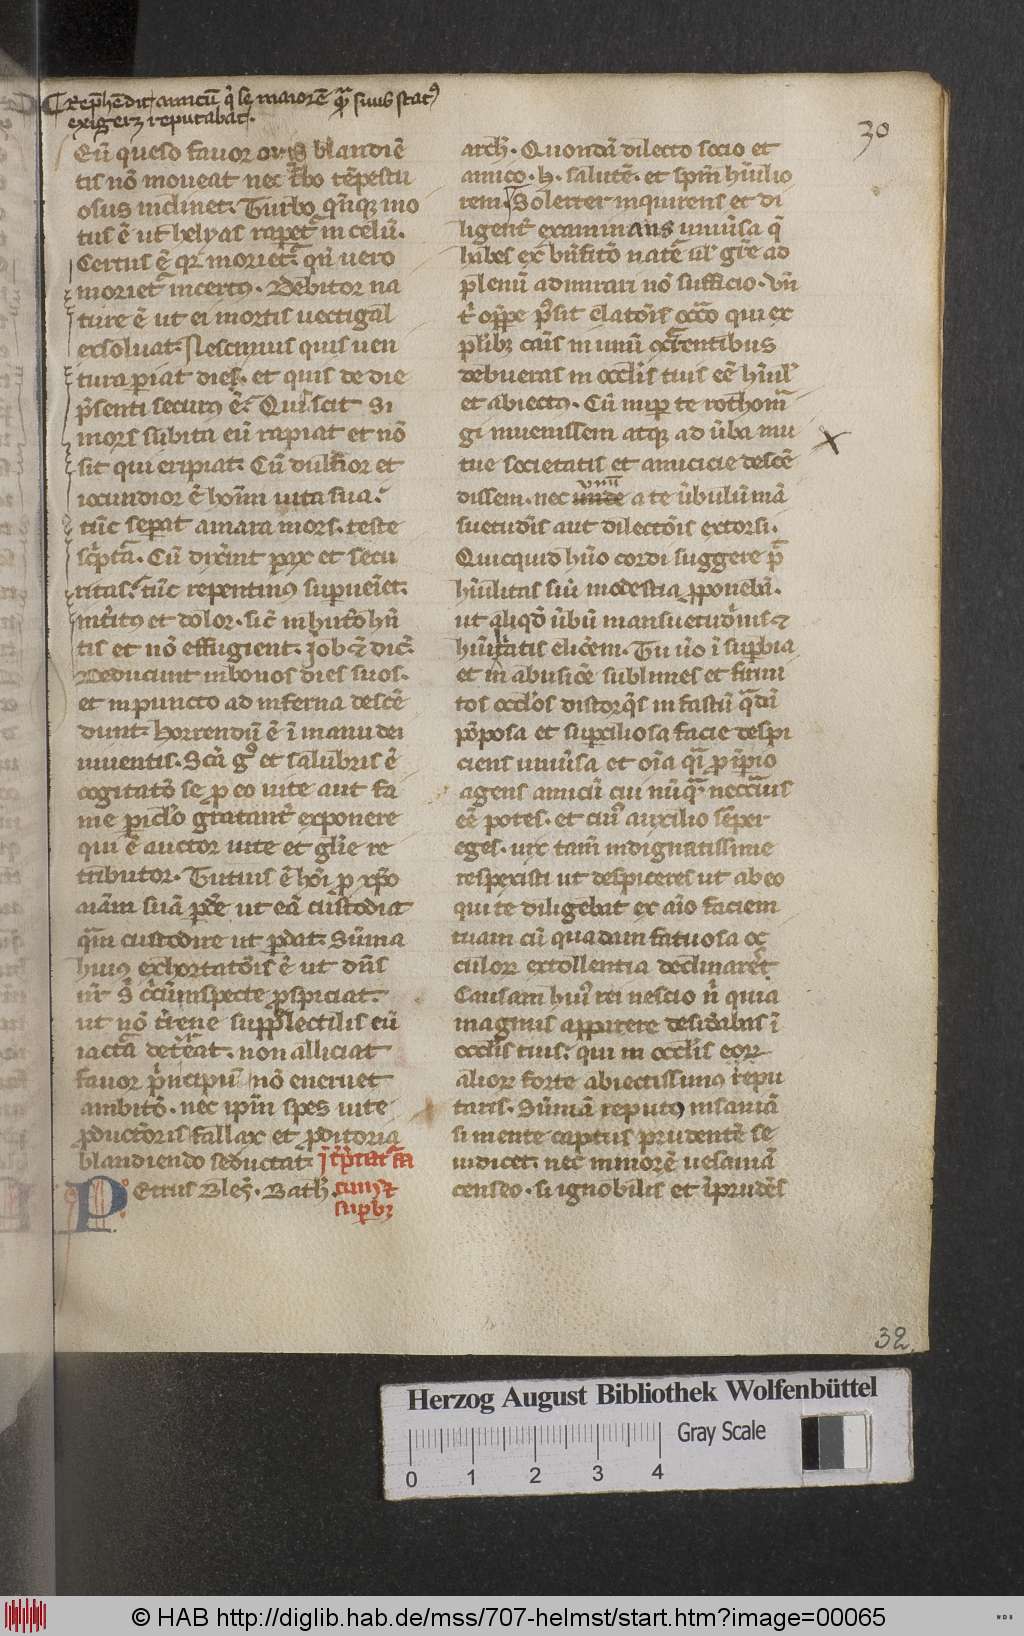 Rep̄hēdit amicū q̇ se maiorē q̄ꝫ suus statꝰ
exigeret reputabat.
30
Eū queso fauor oris blandiē
tis nō moueat nec t͛bo tēpestu
osus inclinet. Turbo q̄nqꝫ mo
tus ē ut helyas rapet᷑ in celū.
Certus ē qꝛ moriet᷑ qn̄ uero
moriet᷑ incertꝰ. Debitor na
ture ē ut ei mortis uectigal
exsoluat. Nescimus quis uen
tura pariat dies. et quis de die
p̄senti securus ē. Quis scit si
mors subita eū rapiat et nō
sit qui eripiat. Cū dulcior et
iocundior ē hoīm uita sua.
tūc sepat amara mors. teste
sc̓ptā. Cū dix̓int pax et secu
ritas. tūc repentinus supueīet
int̓itꝰ et dolor. sic̄ in hut̓o hn̄
tis et nō effugient. job ⁊ dic̄.
Deducunt in bonos dies suos.
et in puncto ad inferna descē
dunt. horrendū ē ī manu dei
uiuentis. Scū gͦ et salubris ē
cogitatō se pro eo uite aut fa
me piclo gratant᷑ exponere
qui ē auctor uite et glīe re
tributor. Tutius ē hōi p xp̄o
aīam suā pde ut eā custodiat
quā custodire ut pdat. Sūma
huius exhortatōis ē ut dn̄s
nr̄ s̄ c̓cūmspecte pspiciat.
ut nō t̓rene suppllectilis eū
iactā det̓reat. non alliciat
fauor p̓ncipū nō eneruet
ambitō. nec ip̄m spes uite
pductōris fallax et pditoria
blandiendo seductat.
Petrus Bles̄. Bath̄.
arch̄. Quondā dilecto socio et
amico. h. salutē. et sp̄m hūilio
rem. Sollerter inquirens et di
ligent᷑ examinans uniūsa q̄
habes ex bn̄fitō natē ul̓ grē ad
plenū admirari nō sufficio. vn̄
t̓ opp̄e p̓sit elatōis occō qui ex
plibꝫ cāis in unū occ̓rentibus
debueras in occlīs tuis eē hūil̓
et abiectꝰ. Cū nup te rothom̄a
gi inuenissem atqꝫ ad ūba mu
tue societatis et amicicie descē
dissem. nec unū a te ūbulū mā
suetudīs aut dilectōis extorsi.
Quicquid hūo cordi suggere p̄
hūilitas siū modestia pponebā.
ut aliqd̄ ūbū mansuetud̓nis ⁊
hūitatis elic̓em. Tu ūo ī supbia
et in abusicē sublimes et fīmi
tos occlos distorq̄s in fastū q̄dā
pōposa et supciliosa facie despi
ciens uniūsa et oīa q̄i p īpio
agens amicū cui nūq̄ neccīus
eē potes. et cuiꝰ auxilio semper
eges. uix tam̄ indignatissime
respexisti ut despiceres ut ab eo
qui te diligebat ex aīo faciem
tuam cū quadam fatuosa oc
culoꝝ extollentia declinaret.
Causam huiꝰ rei nescio n̓ quia
magnus apparere desid̓abas ī
occlīs tuis. qui in occlīs eoꝝ
alioꝝ forte abiectissimus t̓repu
taris. Sūmā reputo insaniā
si mente captus prudentē se
iudicet. nec minorē uesaniā
censeo. si ignobilis et īprudēs
32
Herzog August Bibliothek Wolfenbüttel
Gray Scale
0 1 2 3 4
© HAB http://diglib.hab.de/mss/707-helmst/start.htm?image=00065